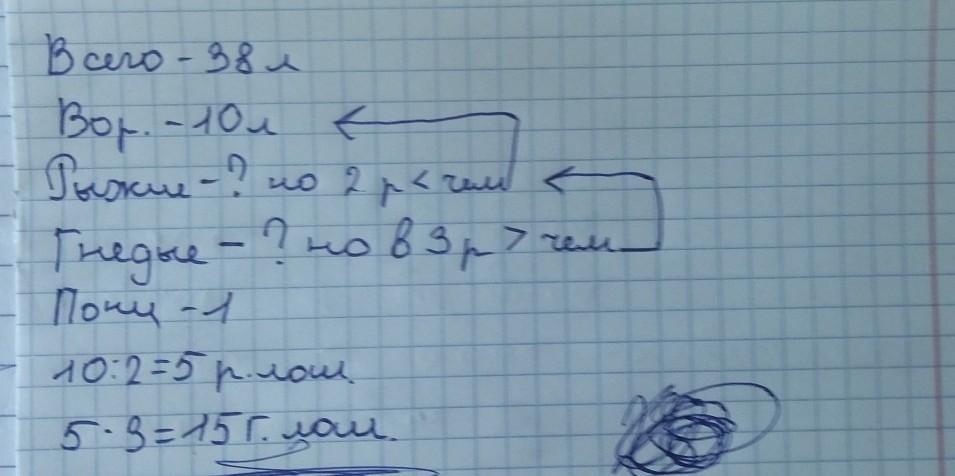 Всего - 38 л
Вор. - 10 л
Рыжие - ? но 2 р < чем
Гнедые - ? но в 3 р > чем
Пони - 1
10:2=5 р. лош.
5·3=15 г. лош.